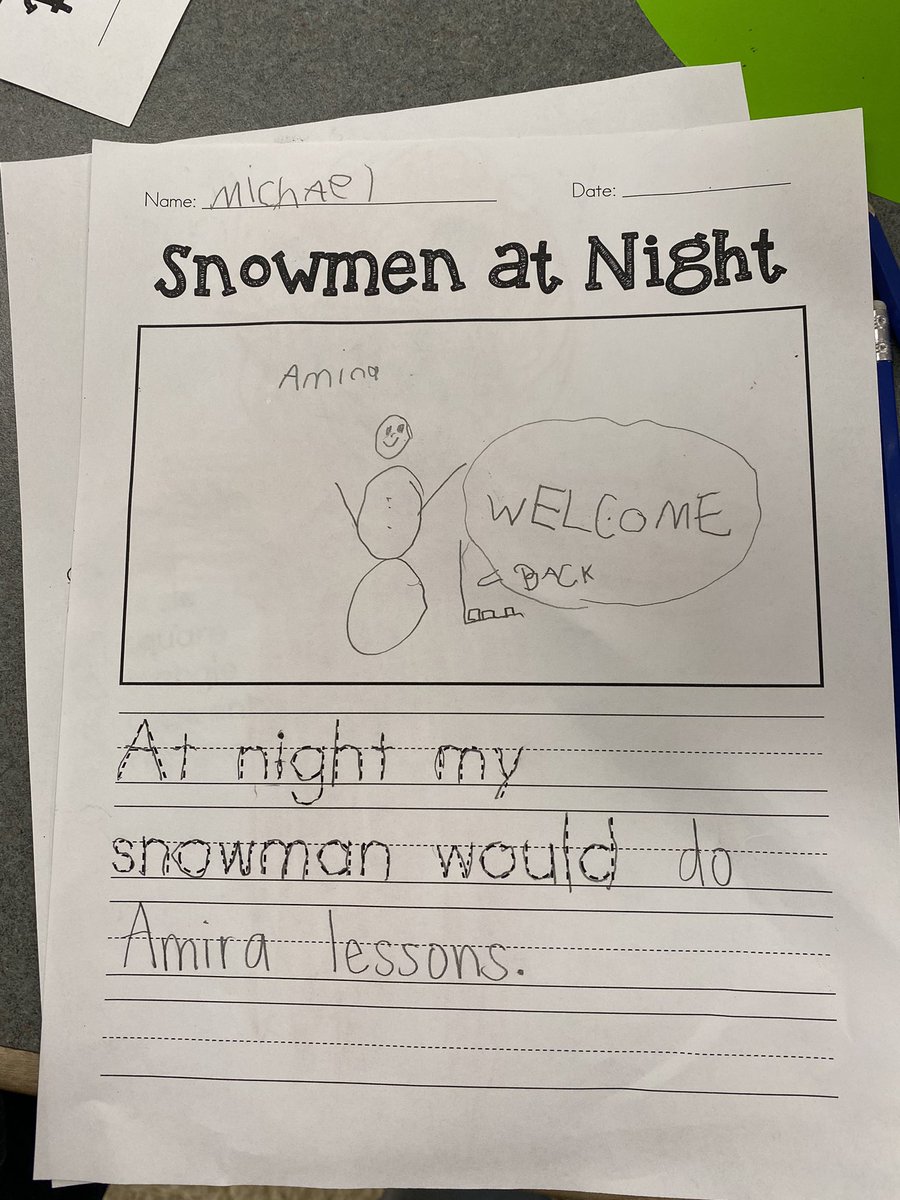 Name: MichAel
Date:
Snowmen at Night
Amira
WELCOME
BACK
At night my
snowman would do
Amira lessons.